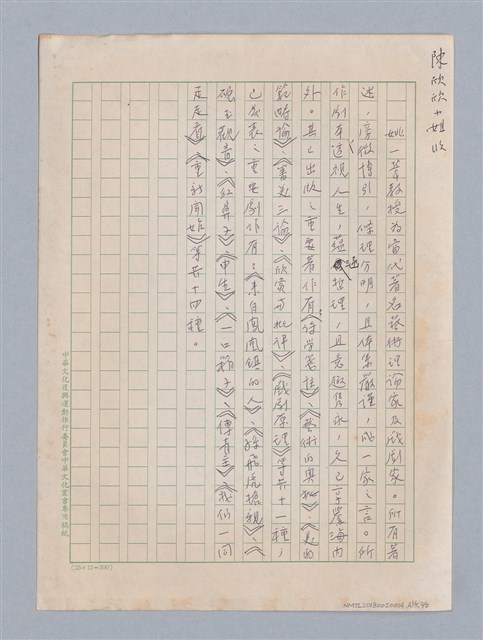 陳欣欣小姐收
姚一葦教授為當代著名藝術理論家及戲劇家。所有著
述，旁徵博引，條理分明，且体系嚴謹，成一家之言。所
作劇本透視人生，蘊涵哲理，且意趣雋永，久已享譽海內
外。其已出版之重要著作有：《詩學箋註》、《藝術的奧秘》、《美的
範疇論》、《審美三論》、《欣賞與批評》、《戲劇原理》等共十一種，
已發表之重要劇作有：《來自鳳凰鎮的人》、《孫飛虎搶親》、《
碾玉觀音》、《紅鼻子》、《申生》、《一口箱子》、《傅青主》、《我們一同
走走看》、《重新開始》等共十四種。
中華文化復興運動推行委員會中華文化叢書專用稿紙
(25×12=300)
NMTL20180020014